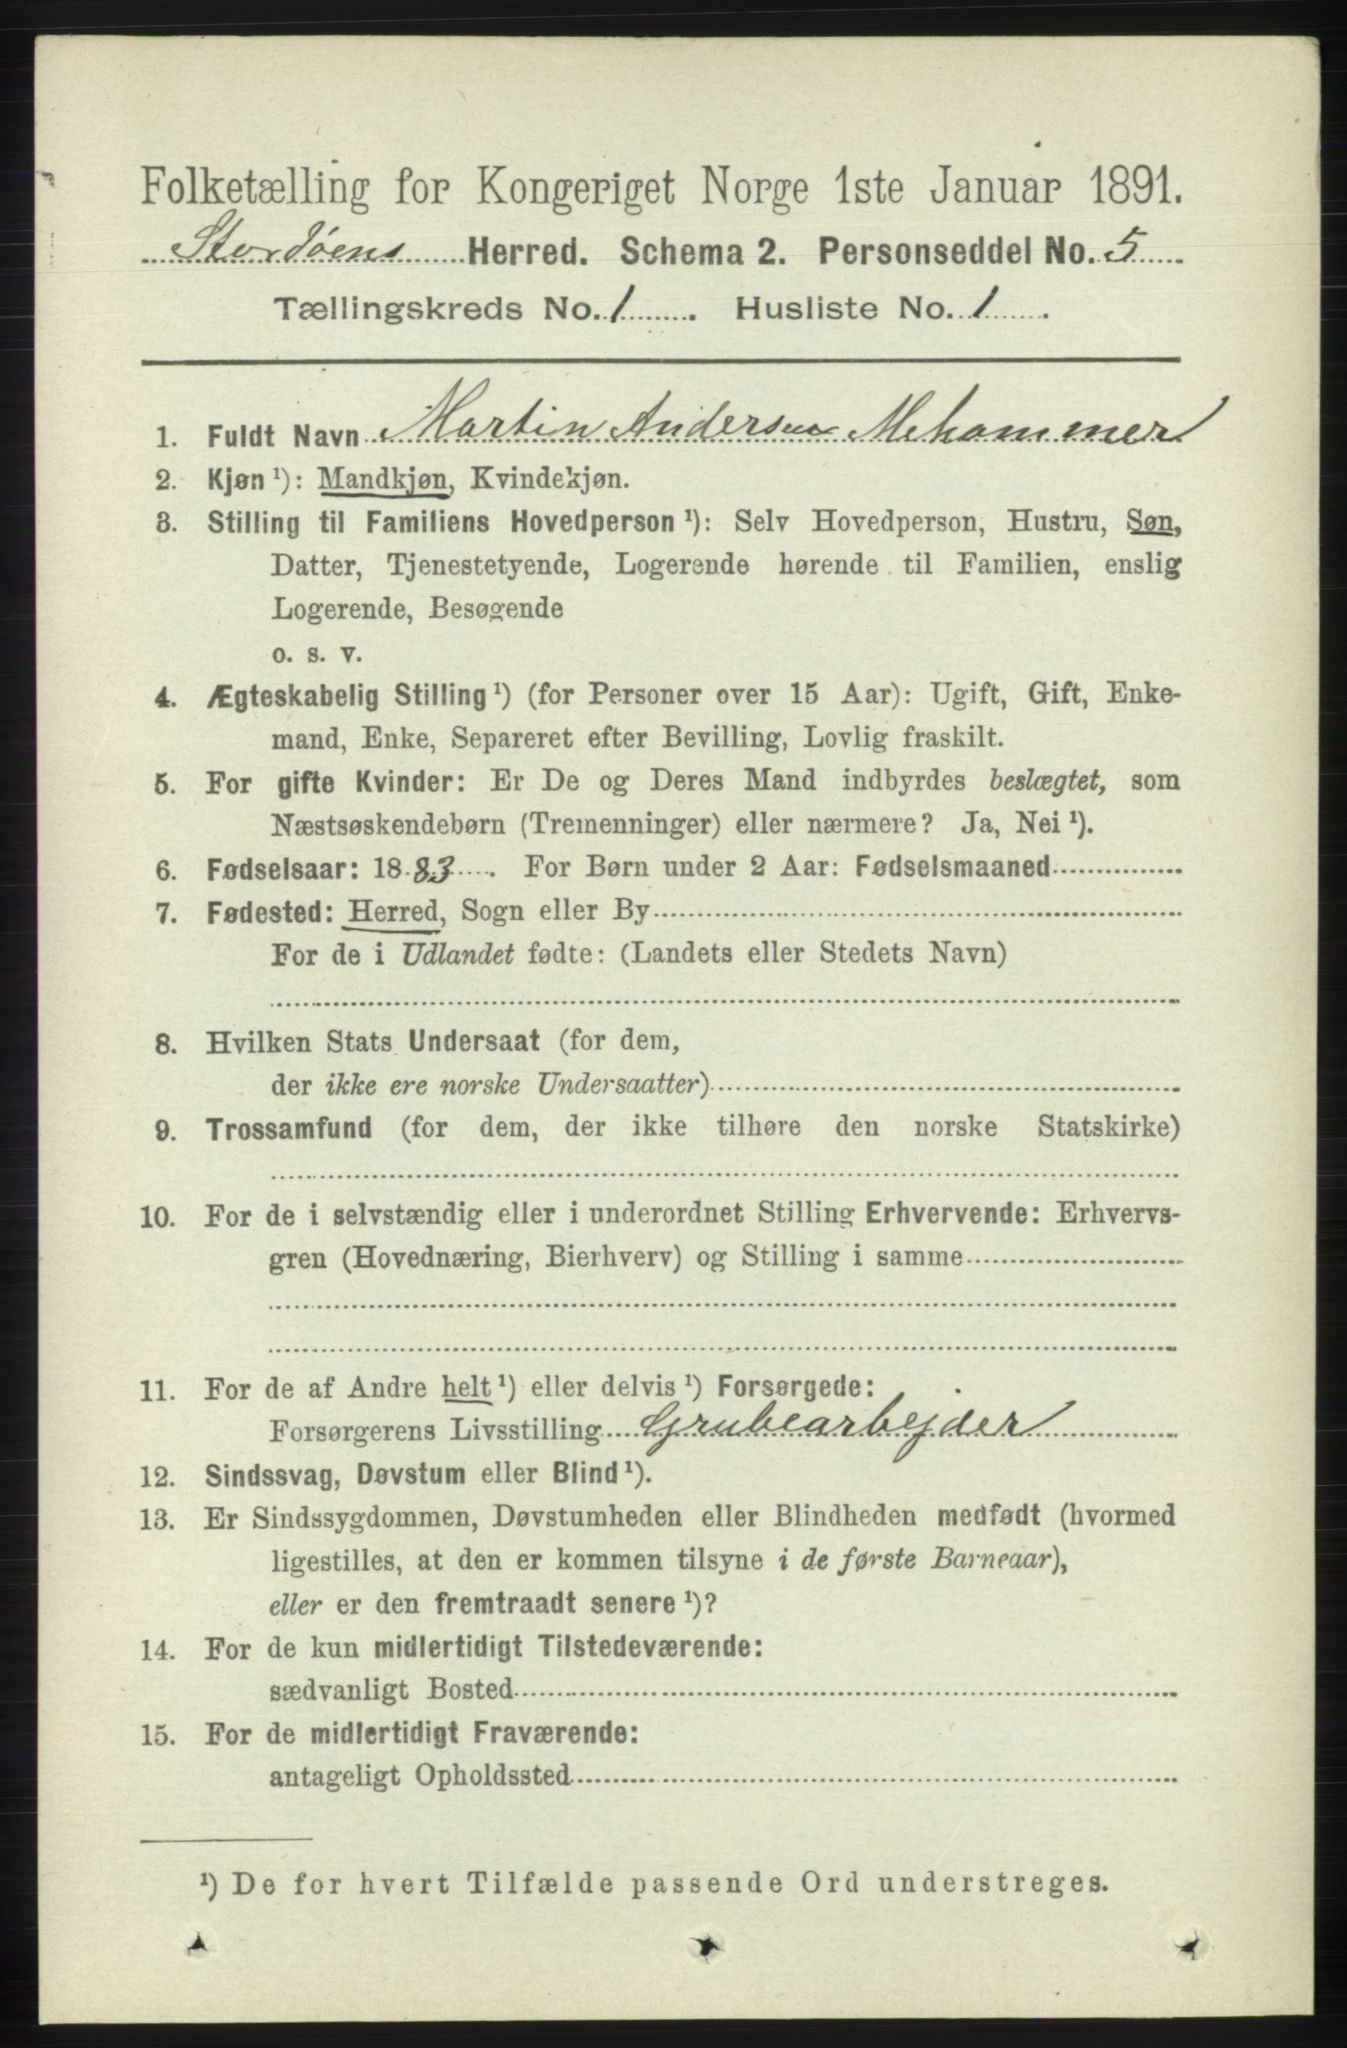 Folketælling for Kongeriget Norge 1ste Januar 1891.
Stordøens Herred. Schema 2. Personseddel No. 5
Tællingskreds No. 1. Husliste No. 1.
1. Fuldt Navn Martin Andersen Mehammer
2. Kjøn ¹): Mandkjøn, Kvindekjøn.
3. Stilling til Familiens Hovedperson ¹): Selv Hovedperson, Hustru, Søn,
Datter, Tjenestetyende, Logerende hørende til Familien, enslig
Logerende, Besøgende
o. s. v.
4. Ægteskabelig Stilling ¹) (for Personer over 15 Aar): Ugift, Gift, Enke-
mand, Enke, Separeret efter Bevilling, Lovlig fraskilt.
5. For gifte Kvinder: Er De og Deres Mand indbyrdes beslægtet, som
Næstsøskendebørn (Tremenninger) eller nærmere? Ja, Nei ¹).
6. Fødselsaar: 1883. For Børn under 2 Aar: Fødselsmaaned
7. Fødested: Herred, Sogn eller By
For de i Udlandet fødte: (Landets eller Stedets Navn)
8. Hvilken Stats Undersaat (for dem,
der ikke ere norske Undersaatter)
9. Trossamfund (for dem, der ikke tilhøre den norske Statskirke)
10. For de i selvstændig eller i underordnet Stilling Erhvervende: Erhvervs-
gren (Hovednæring, Bierhverv) og Stilling i samme
11. For de af Andre helt ¹) eller delvis ¹) Forsørgede:
Forsørgerens Livsstilling Grubearbejder
12. Sindssvag, Døvstum eller Blind ¹).
13. Er Sindssygdommen, Døvstumheden eller Blindheden medfødt (hvormed
ligestilles, at den er kommen tilsyne i de første Barneaar),
eller er den fremtraadt senere ¹)?
14. For de kun midlertidigt Tilstedeværende:
sædvanligt Bosted
15. For de midlertidigt Fraværende:
antageligt Opholdssted
¹) De for hvert Tilfælde passende Ord understreges.